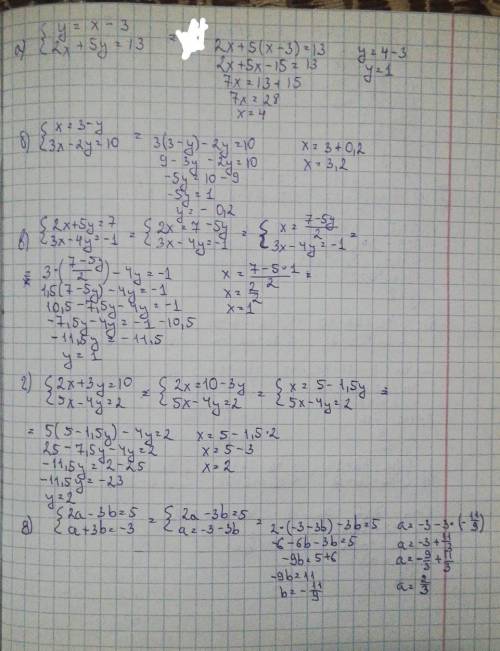 а) { y = x - 3
{ 2x + 5y = 13 =
2x + 5(x - 3) = 13
2x + 5x - 15 = 13
7x = 13 + 15
7x = 28
x = 4
y = 4 - 3
y = 1
б) { x = 3 - y
{ 3x - 2y = 10 =
3(3 - y) - 2y = 10
9 - 3y - 2y = 10
-5y = 10 - 9
-5y = 1
y = - 0,2
x = 3 + 0,2
x = 3,2
в) { 2x + 5y = 7
{ 3x - 4y = -1 = { 2x = 7 - 5y
{ 3x - 4y = -1 = { x = (7 - 5y)/2
{ 3x - 4y = -1 =
= 3 · (7 - 5y)/2) - 4y = -1
1,5(7 - 5y) - 4y = -1
10,5 - 7,5y - 4y = -1
-7,5y - 4y = -1 - 10,5
-11,5y = -11,5
y = 1
x = (7 - 5 · 1)/2 =
x = 2/2
x = 1
г) { 2x + 3y = 10
{ 5x - 4y = 2 = { 2x = 10 - 3y
{ 5x - 4y = 2 = { x = 5 - 1,5y
{ 5x - 4y = 2 =
= 5(5 - 1,5y) - 4y = 2
25 - 7,5y - 4y = 2
-11,5y = 2 - 25
-11,5y = -23
y = 2
x = 5 - 1,5 · 2
x = 5 - 3
x = 2
д) { 2a - 3b = 5
{ a + 3b = -3 = { 2a - 3b = 5
{ a = -3 - 3b =
2 · (-3 - 3b) - 3b = 5
-6 - 6b - 3b = 5
-9b = 5 + 6
-9b = 11
b = - 11/9
a = -3 - 3 · (- 11/9)
a = -3 + 11/3
a = - 9/3 + 11/3
a = 2/3